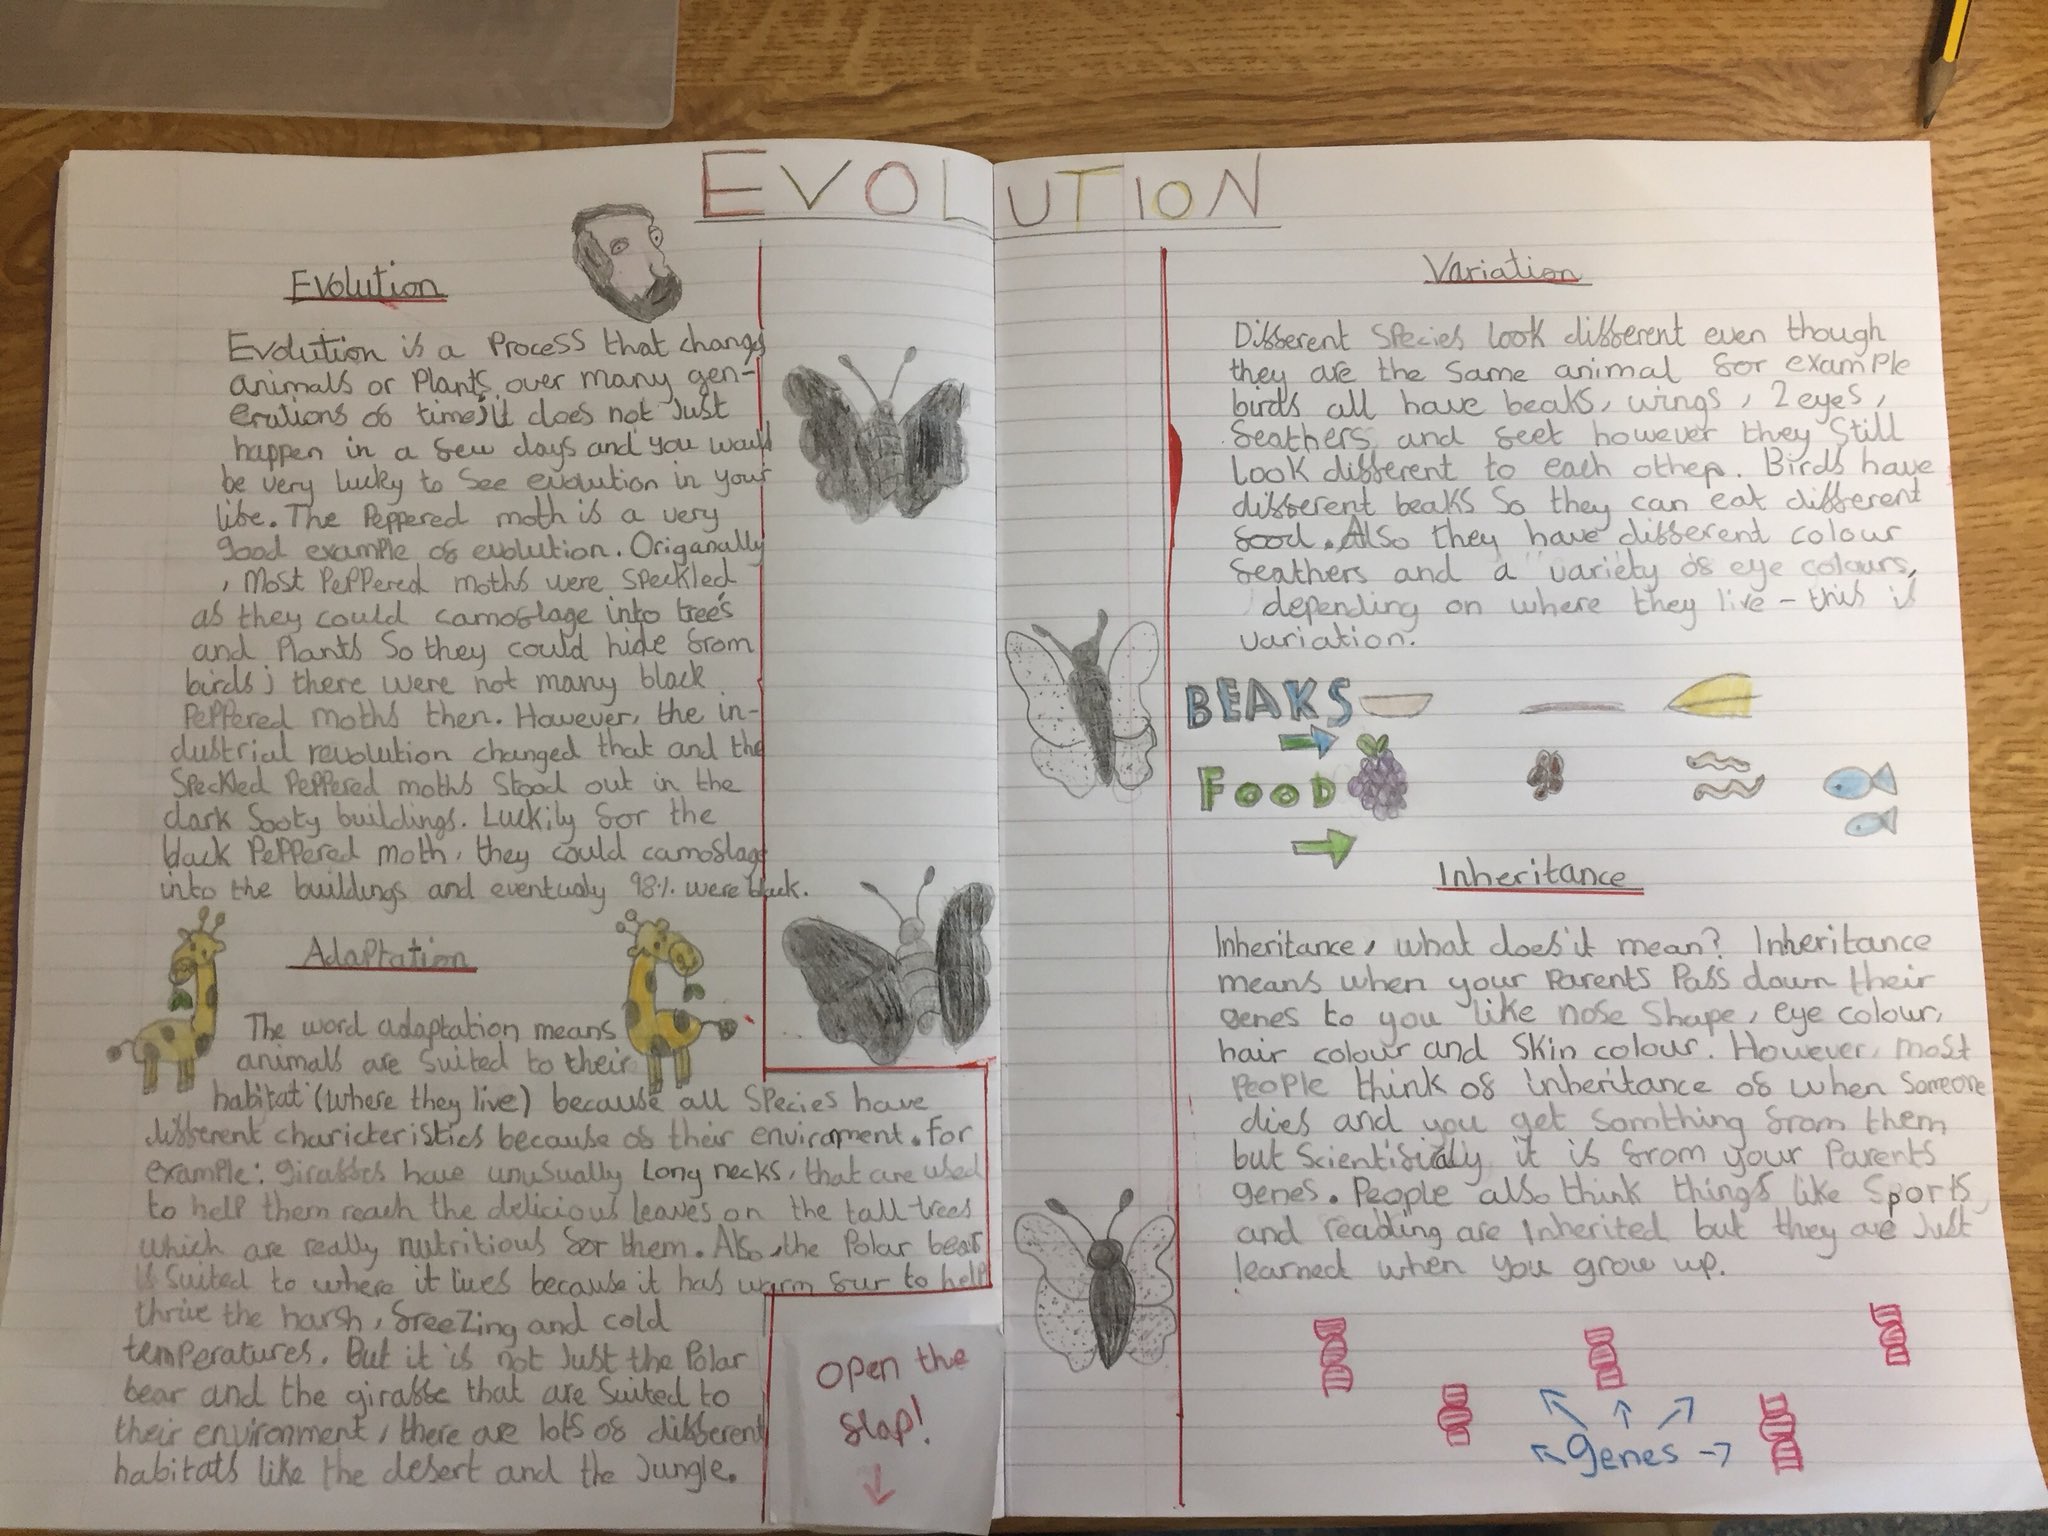 EVOLUTION
Evolution
Evolution is a Process that changes
animals or Plants over many gen-
erations of time; it does not Just
happen in a few days and you would
be very lucky to see evolution in your
life. The Peppered moth is a very
good example of evolution. Origanally
, Most Peppered moths were speckled
as they could camoflage into trees
and Plants So they could hide from
birds; there were not many black
Peppered moths then. However, the in-
dustrial revolution changed that and the
Speckled Peppered moths Stood out in the
dark Sooty buildings. Luckily for the
black Peppered moth, they could camoflage
into the buildings and eventualy 98% were black.
Adaptation
The word adaptation means
animals are suited to their
habitat (where they live) because all Species have
different charicteristics because of their enviroment. For
example: giraffes have unusually Long necks, that are used
to help them reach the delicious leaves on the tall trees
which are really nutritious for them. Also, the Polar bear
is suited to where it lives because it has warm fur to help
thrive the harsh, freezing and cold
temperatures. But it is not Just the Polar
bear and the giraffe that are Suited to
their environment, there are lots of different
habitats like the desert and the Jungle.
Open the
flap!
Variation
Different Species look different even though
they are the Same animal for example
birds all have beaks, wings, 2 eyes,
feathers and feet however they Still
Look different to each other. Birds have
different beaks So they can eat different
food. Also they have different colour
feathers and a variety of eye colours,
depending on where they live - this is
variation.
BEAKS
FOOD
Inheritance
Inheritance, what does it mean? Inheritance
means when your Parents Pass down their
genes to you like nose Shape, eye colour,
hair colour and Skin colour. However, most
People think of inheritance of when Someone
dies and you get Somthing from them
but Scientifically it is from your Parents
genes. People also think things like Sports
and reading are Inherited but they are Just
learned when you grow up.
genes